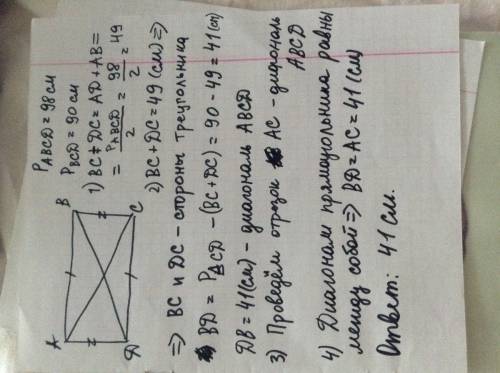 P ABCD = 98 см
P BCD = 90 см
1) BC + DC = AD + AB =
= P ABCD / 2 = 98 / 2 = 49
2) BC + DC = 49 (см) ⇒
⇒ BC и DC - стороны треугольника
BD = P ACD - (BC + DC) = 90 - 49 = 41 (см)
DB = 41 (см) - диагональ ABCD
3) Проведём отрезок AC - диагональ
ABCD
4) Диагонали прямоугольника равны
между собой ⇒ BD = AC = 41 (см)
Ответ: 41 см.
A
B
C
D